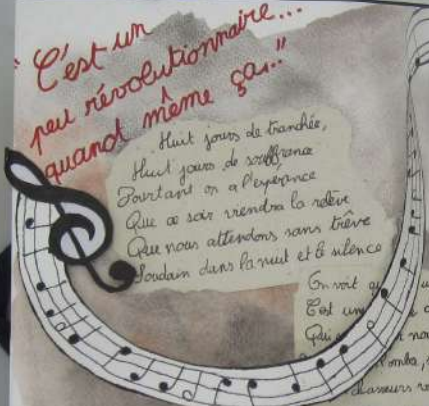 "C'est un
peu révolutionnaire...
quand même ça..."
Huit jours de tranchée,
Huit jours de souffrance
Pourtant on a l'espérance
Que ce soir viendra la relève
Que nous attendons sans trêve
Soudain dans la nuit et le silence
On voit
C'est un
Qui
l'ombre,
chasseurs